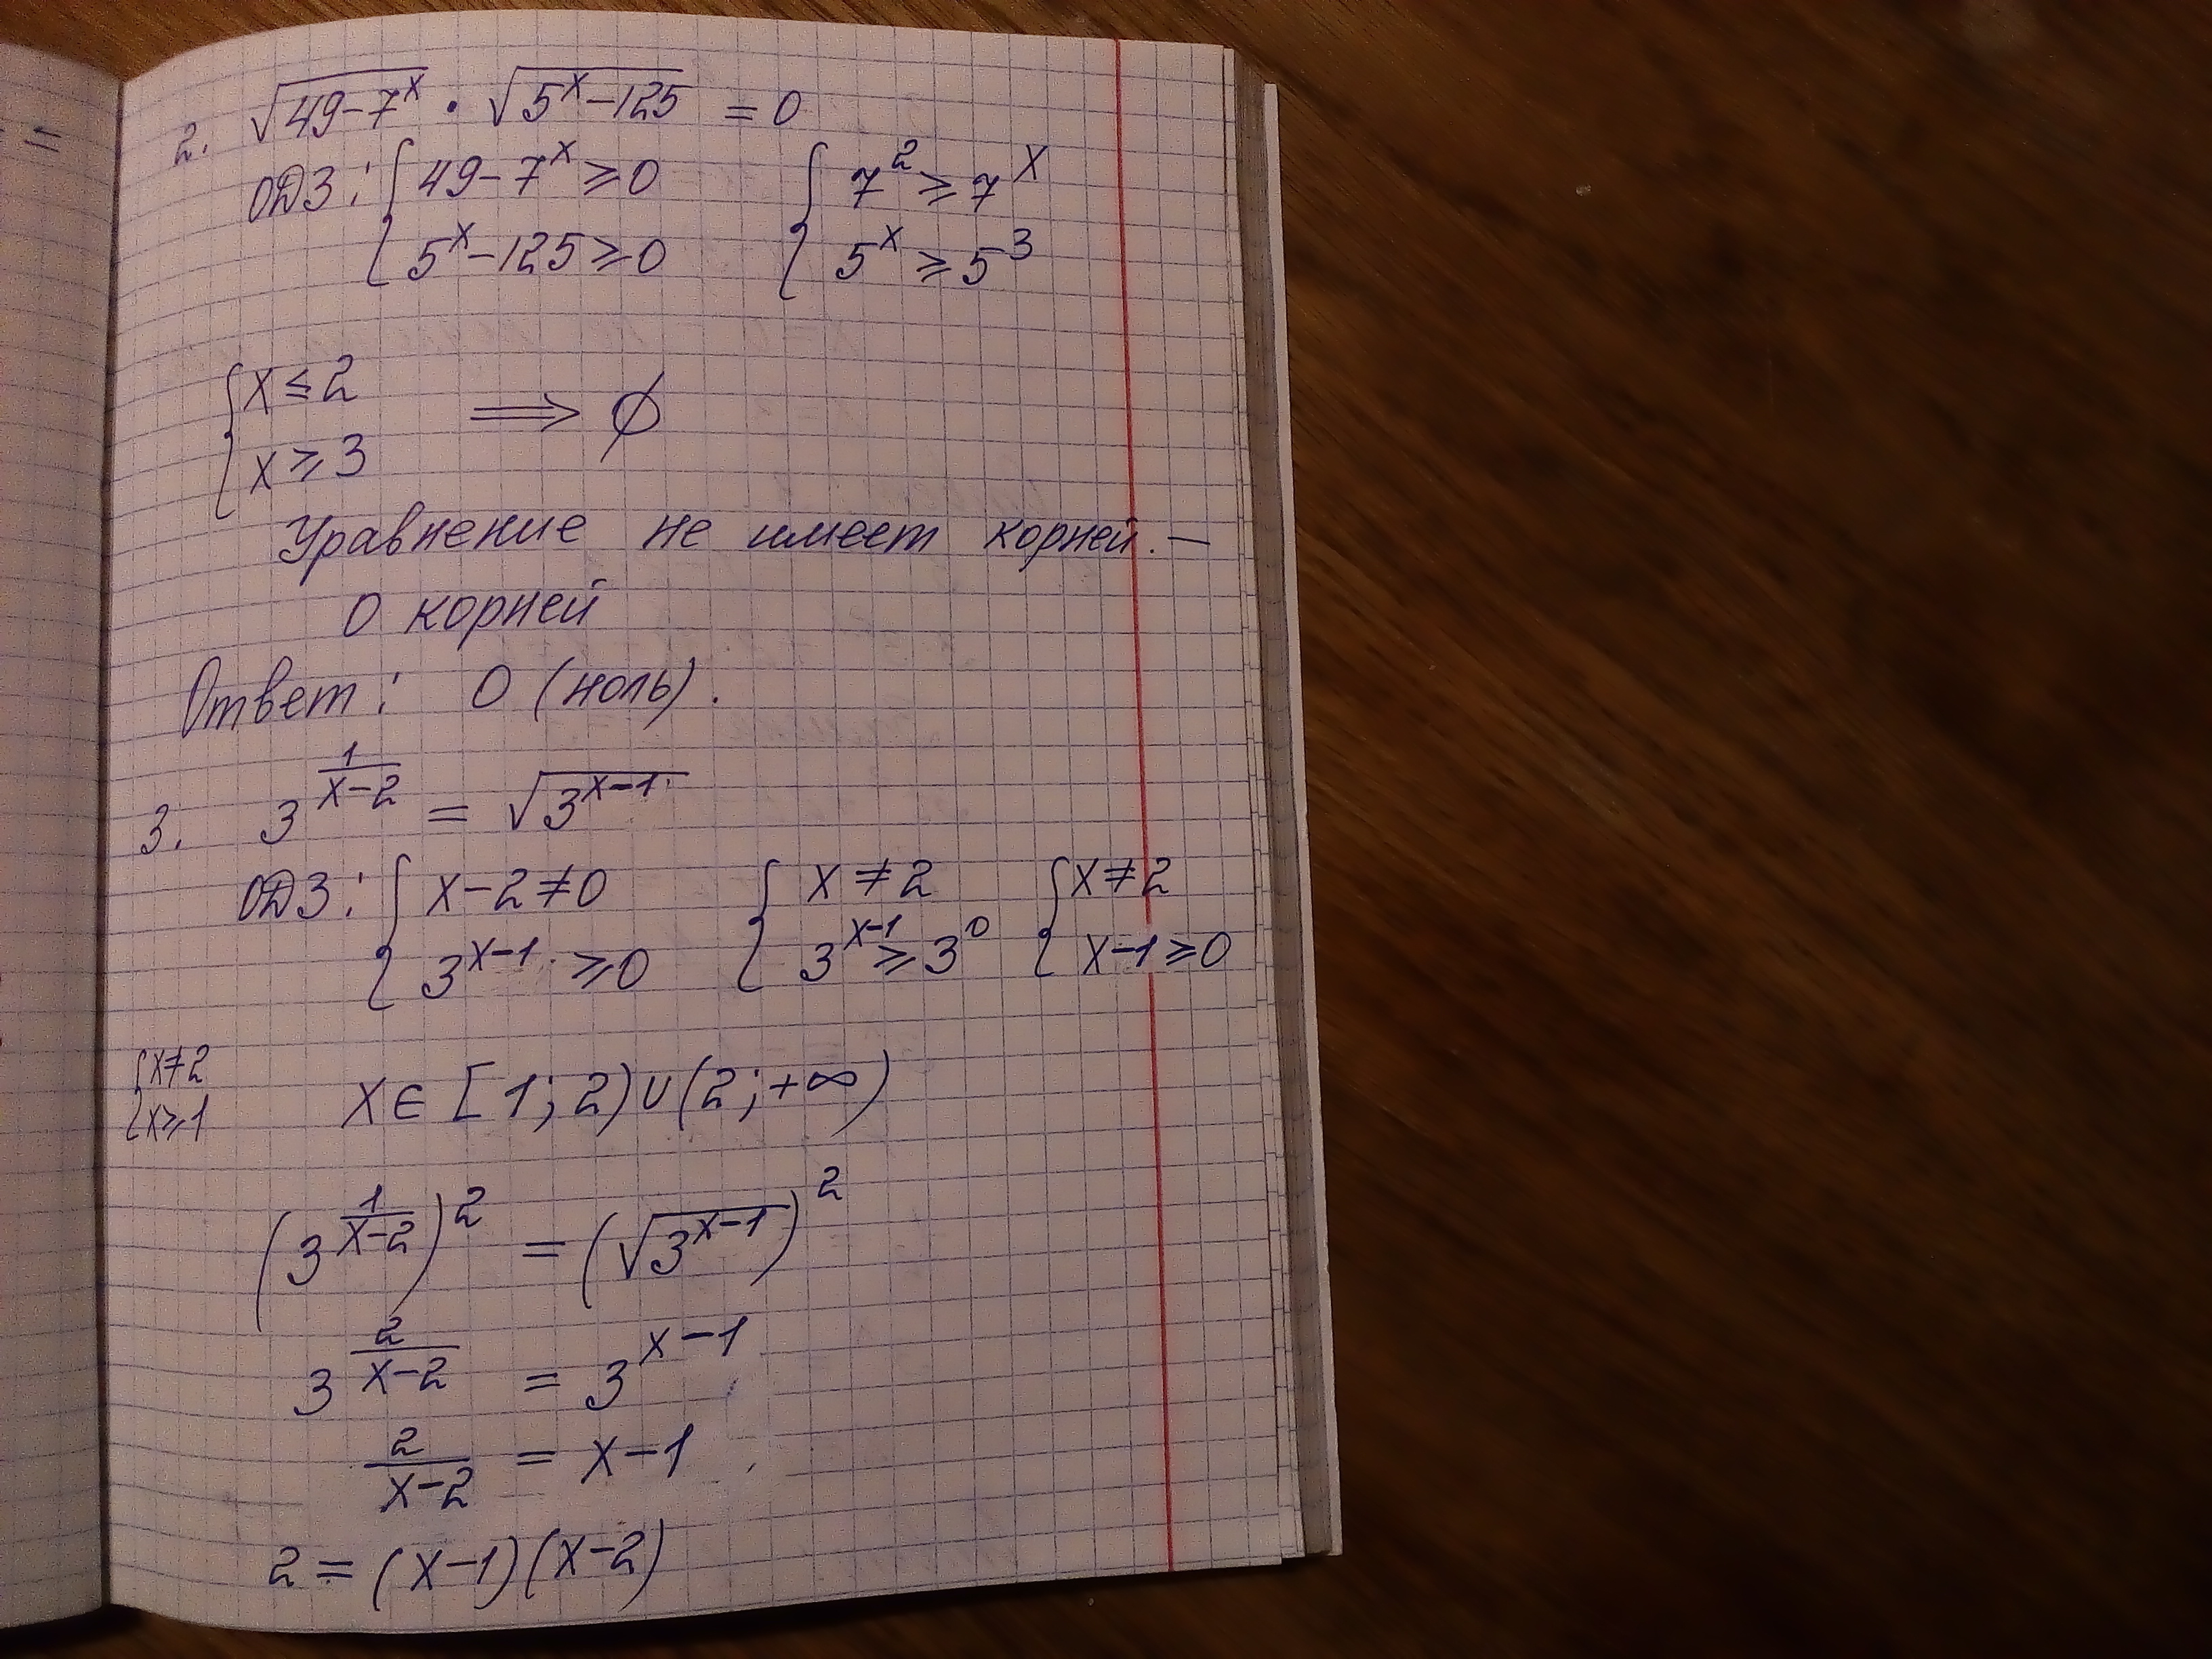 =
2. √(49-7^x) · √(5^x-125) = 0
ОДЗ: { 49-7^x ≥ 0 { 7^2 ≥ 7^x
5^x-125 ≥ 0 5^x ≥ 5^3
{ x ≤ 2
x ≥ 3 ⟹ ∅
Уравнение не имеет корней. —
0 корней
Ответ: 0 (ноль).
3. 3^(1/(x-2)) = √(3^(x-1))
ОДЗ: { x-2 ≠ 0 { x ≠ 2 { x ≠ 2
3^(x-1) ≥ 0 3^(x-1) ≥ 3^0 x-1 ≥ 0
{ x ≠ 2
x ≥ 1 x ∈ [1; 2) ∪ (2; +∞)
(3^(1/(x-2)))^2 = (√(3^(x-1)))^2
3^(2/(x-2)) = 3^(x-1)
2/(x-2) = x-1
2 = (x-1)(x-2)